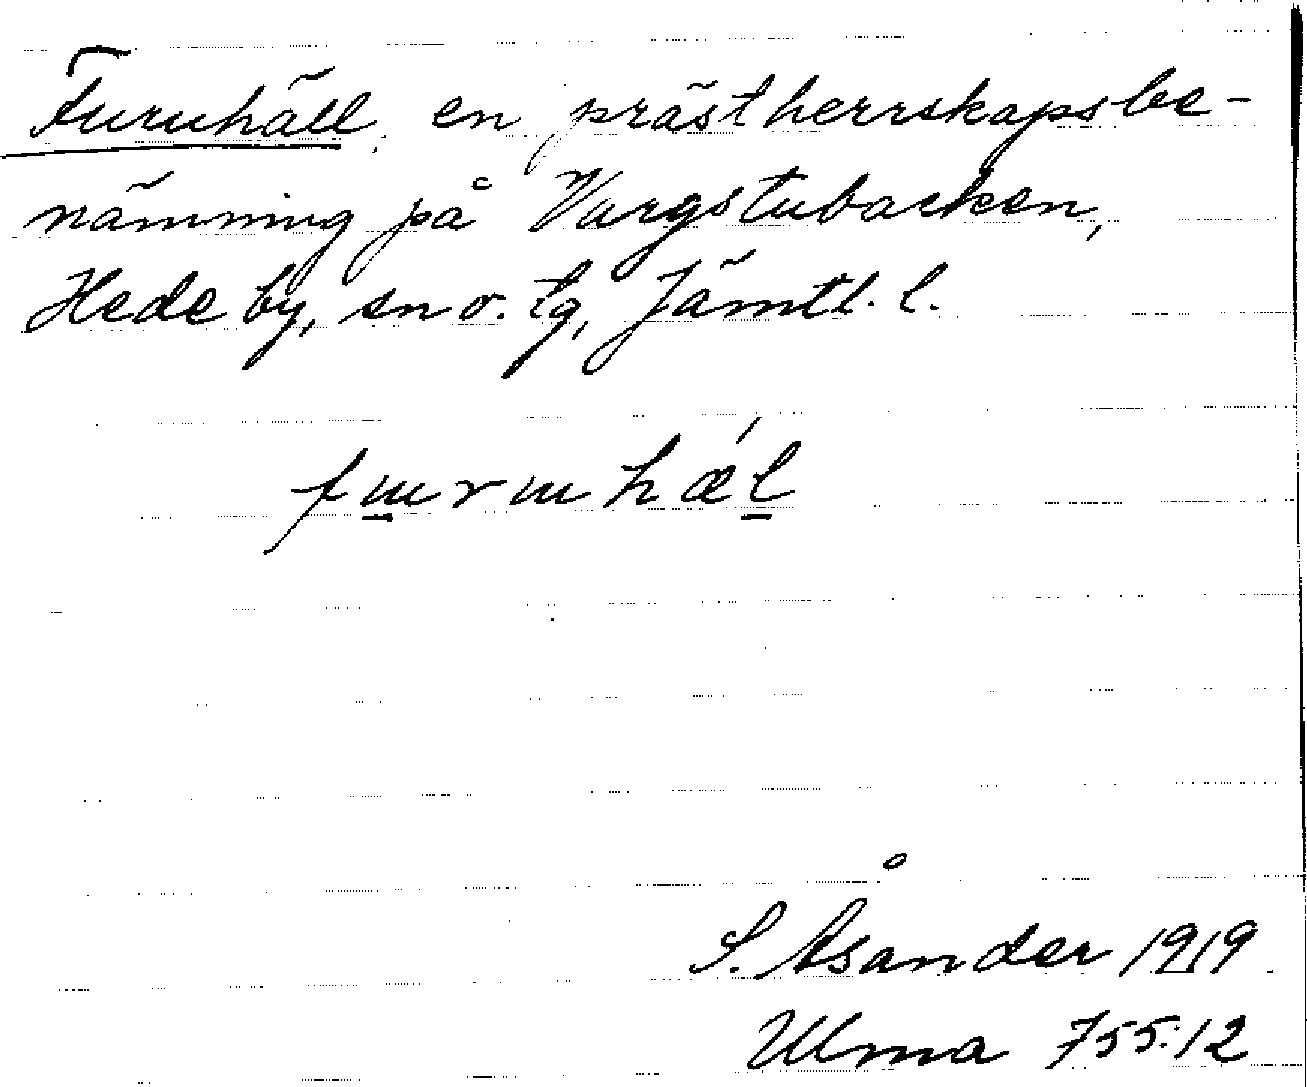 Furuhäll, en prästherrskapsbe-
nämning på Vargstubacken,
Hede by, sn o. tg, Jämtl. l.
furuhæ´l
S. Åsander 1919
Ulma 755:12